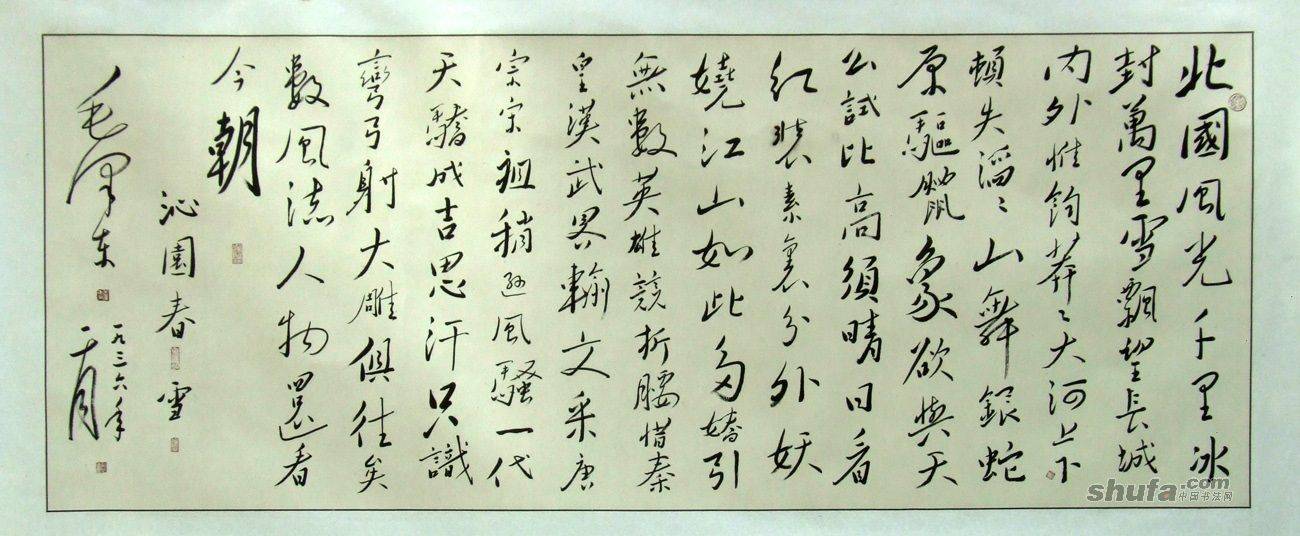 北國風光千里冰
封萬里雪飄望長城
内外惟餘莽〻大河上下
頓失滔〻山舞銀蛇
原驅臘象欲與天
公試比高須晴日看
紅裝素裹分外妖
嬈江山如此多嬌引
無數英雄競折腰惜秦
皇漢武畧輸文采唐
宗宋祖稍遜風騷一代
天驕成吉思汗只識
彎弓射大雕俱往矣
數風流人物還看
今朝
沁園春 雪
毛澤東
一九三六年
二月
shufa.com
中国书法网